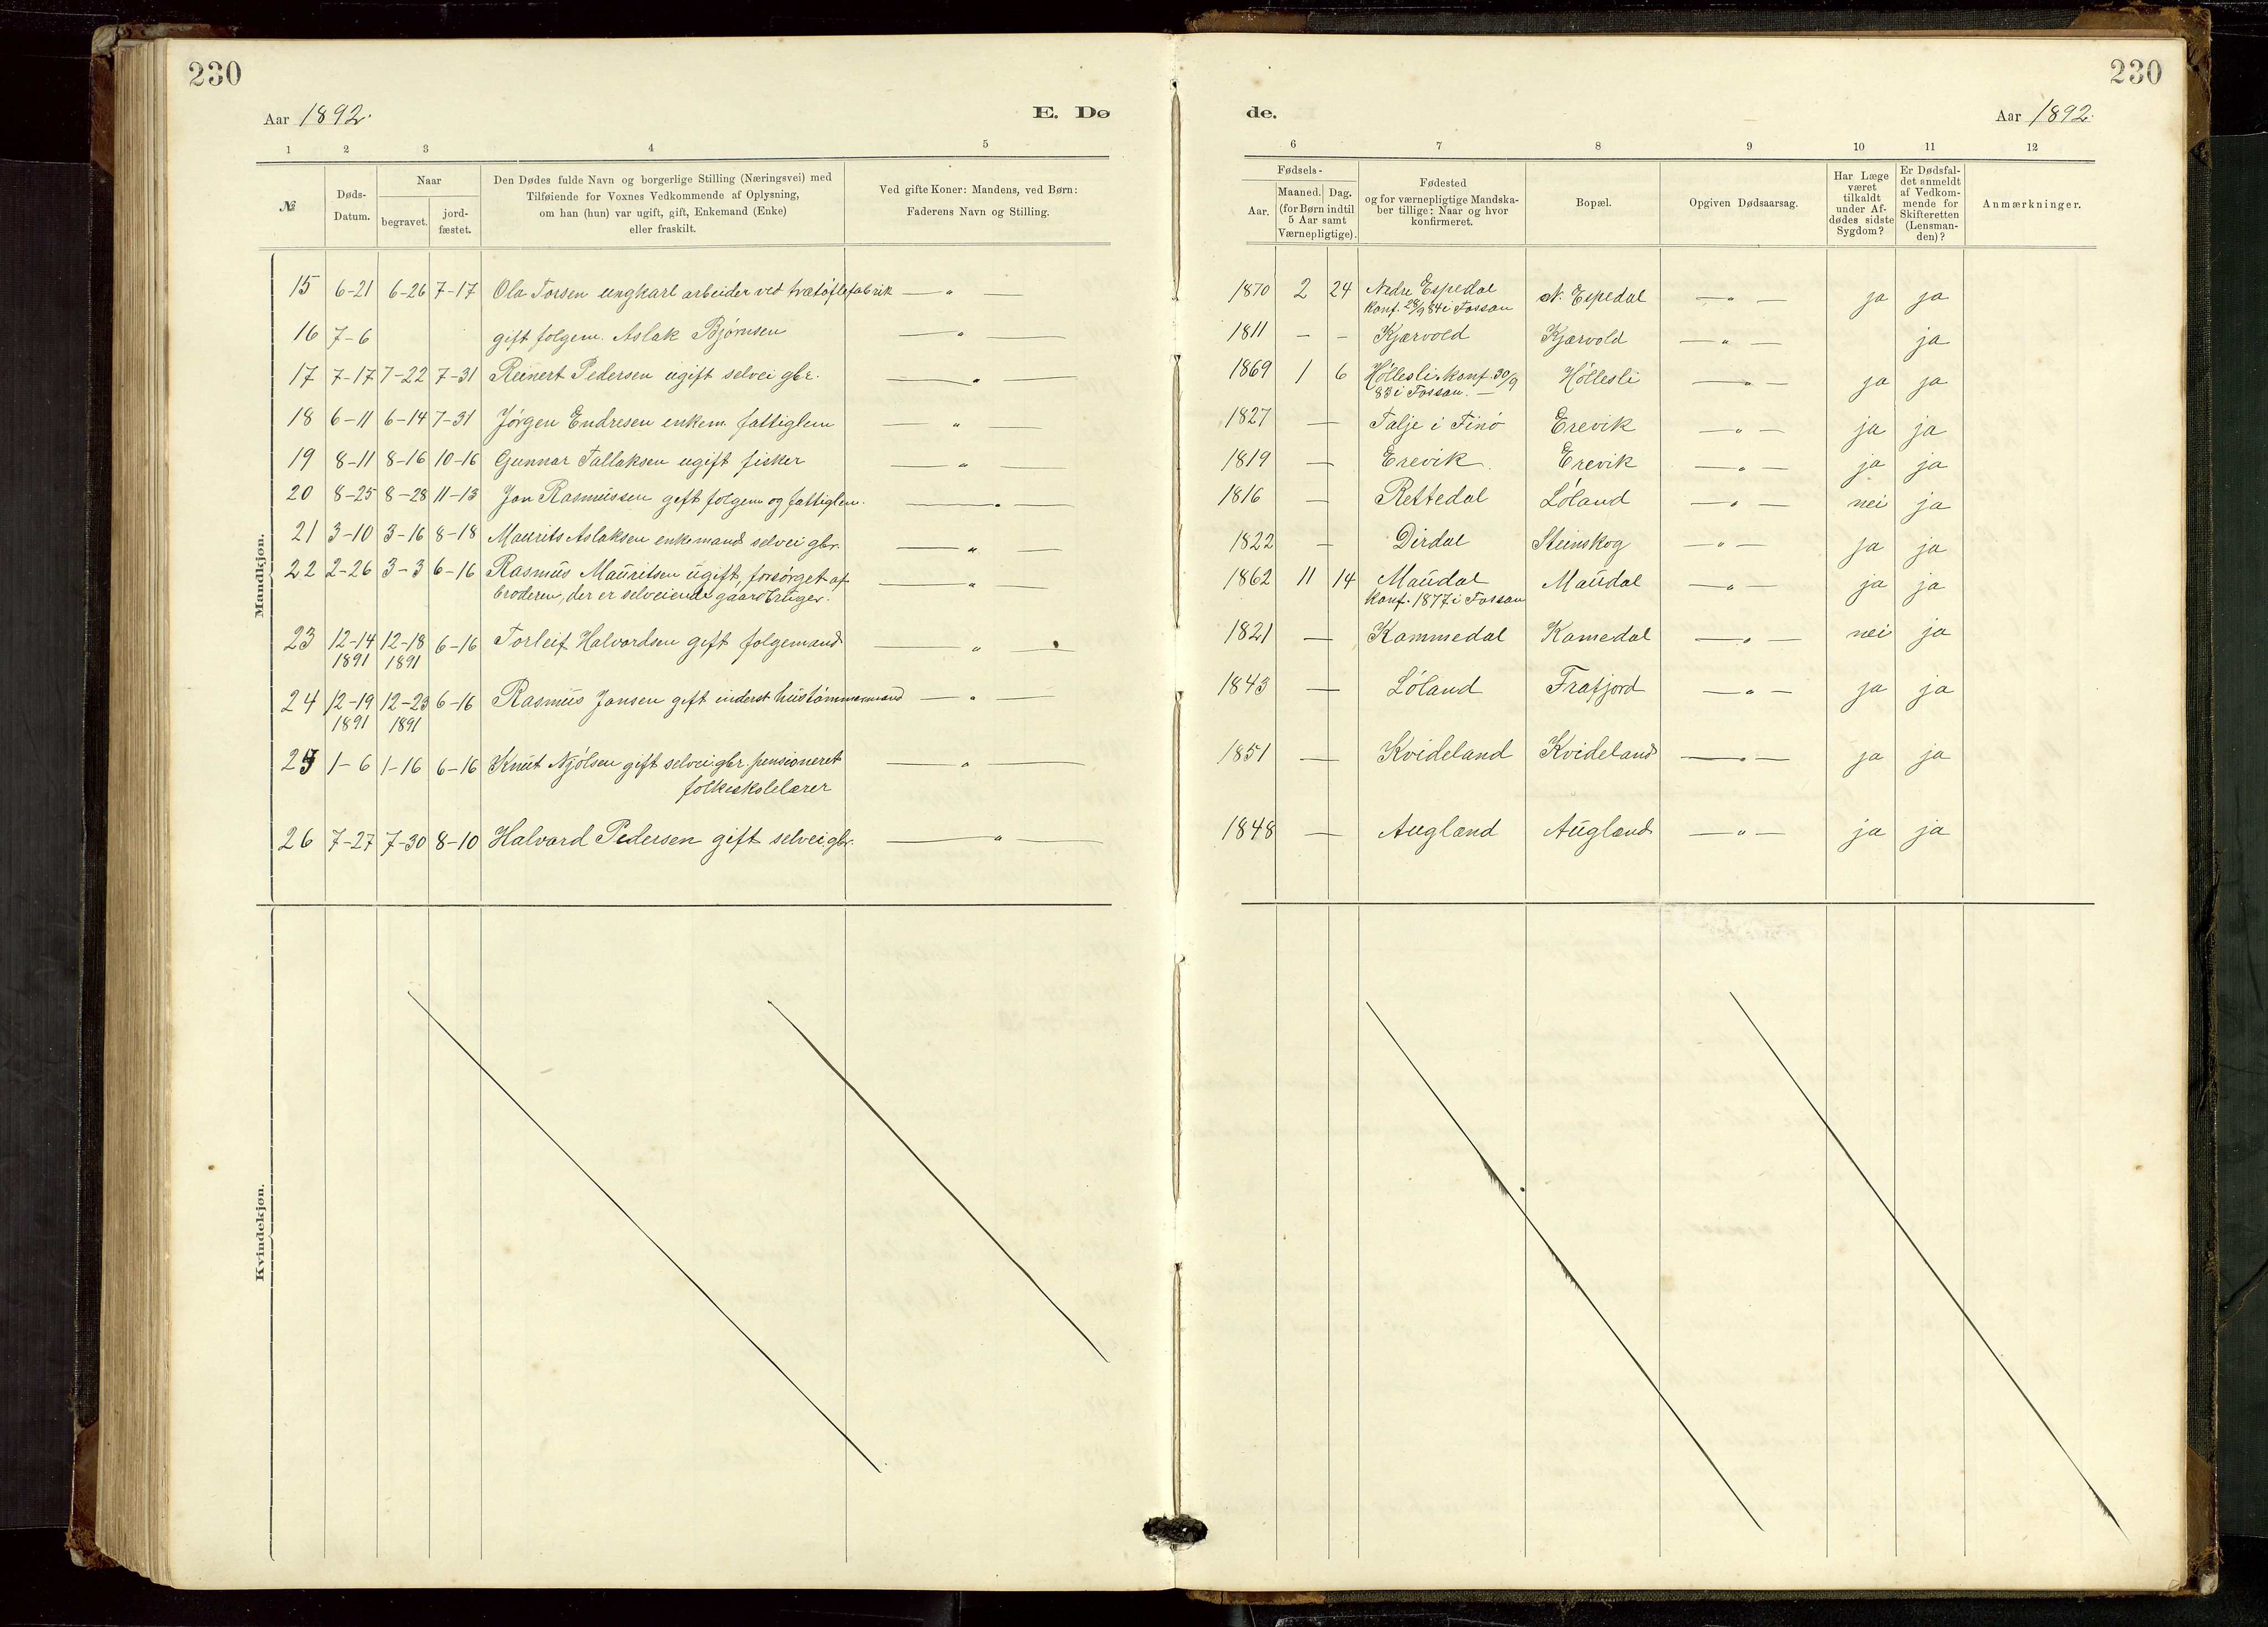 230
230
Aar 1892.
E. Dø
de.
Aar 1892.
1 2 3 4 5
6 7 8 9 10 11 12
№
Døds-
Datum.
Naar
begravet.
jord-
fæstet.
Den Dødes fulde Navn og borgerlige Stilling (Næringsvei) med
Tilføiende for Voxnes Vedkommende af Oplysning,
om han (hun) var ugift, gift, Enkemand (Enke)
eller fraskilt.
Ved gifte Koner: Mandens, ved Børn:
Faderens Navn og Stilling.
Fødsels-
Aar.
Maaned. Dag.
(for Børn indtil
5 Aar samt
Værnepligtige).
Fødested
og for værnepligtige Mandska-
ber tillige: Naar og hvor
konfirmeret.
Bopæl.
Opgiven Dødsaarsag.
Har Læge
været
tilkaldt
under Af-
dødes sidste
Sygdom?
Er Dødsfal-
det anmeldt
af Vedkom-
mende for
Skifteretten
(Lensman-
den)?
Anmærkninger.
Mandkjøn.
15 6-21 6-26 7-17 Ola Torsen ungkarl arbeider ved trætøflefabrik — " — 1870 2 24 Nedre Espedal N. Espedal — " — ja ja
konf. 28/9 84 i Fossan
16 7-6 gift folgem. Aslak Bjørnsen — " — 1811 - - Kjærvold Kjærvold — " — ja
17 7-17 7-22 7-31 Reinert Pedersen ugift selvei gbr. — " — 1869 1 6 Höllesli. konf. 30/9 Höllesli — " — ja ja
83 i Fossan. —
18 6-11 6-14 7-31 Jørgen Endresen enkem. fattiglem — " — 1827 — Talje i Finö Erevik — " — ja ja
19 8-11 8-16 10-16 Gunnar Tallaksen ugift fisker — " — 1819 — Erevik Erevik — " — ja ja
20 8-25 8-28 11-13 Jon Rasmussen gift folgem og fattiglem. — " — 1816 — Rettedal Löland — " — nei ja
21 3-10 3-16 8-18 Maurits Aslaksen enkemand selvei gbr. — " — 1822 — Dirdal Steinskog — " — ja ja
22 2-26 3-3 6-16 Rasmus Mauritsen ugift, forsørget af — " — 1862 11 14 Maudal Maudal — " — ja ja
broderen, der er selveiende gaardbruger. konf. 1877 i Fossan
23 12-14 12-18 6-16 Torleif Halvordsen gift folgemand — " — 1821 — Kommedal Komedal — " — nei ja
1891 1891
24 12-19 12-23 6-16 Rasmus Jansen gift inderst hustømmermand — " — 1843 — Löland Frafjord — " — ja ja
1891 1891
25 1-6 1-16 6-16 Knut Njölsen gift selvei gbr. pensioneret — " — 1851 — Kvideland Kvideland — " — ja ja
folkeskolelærer
26 7-27 7-30 8-10 Halvard Pedersen gift selvei gbr. — " — 1848 — Augland Augland — " — ja ja
Kvindekjøn.